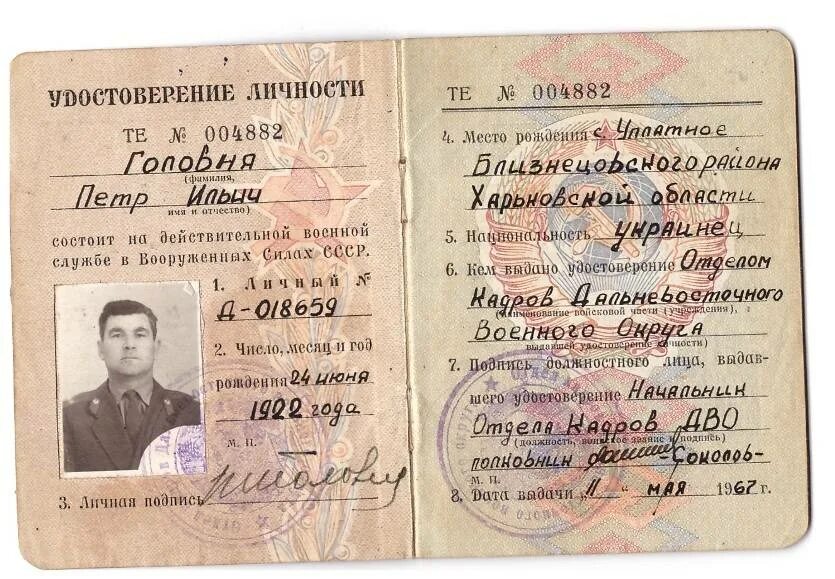 УДОСТОВЕРЕНИЕ ЛИЧНОСТИ
ТЕ № 004882
Головня
(фамилия,
Петр Ильич
имя и отчество)
состоит на действительной военной
службе в Вооруженных Силах СССР.
1. Личный №
Д-018659
2. Число, месяц и год
рождения 24 июня
1922 года
М. П.
3. Личная подпись
ТЕ № 004882
4. Место рождения с. Уплатное
Близнецовского района
Харьковской области
5. Национальность украинец
6. Кем выдано удостоверение Отделом
Кадров Дальневосточного
(наименование войсковой части (учреждения),
Военного Округа
выдавшей удостоверение личности)
7. Подпись должностного лица, выдав-
шего удостоверение Начальник
Отдела Кадров ДВО
(должность, воинское звание и подпись)
полковник -Соколов-
М. П.
8. Дата выдачи „11" мая 1967 г.